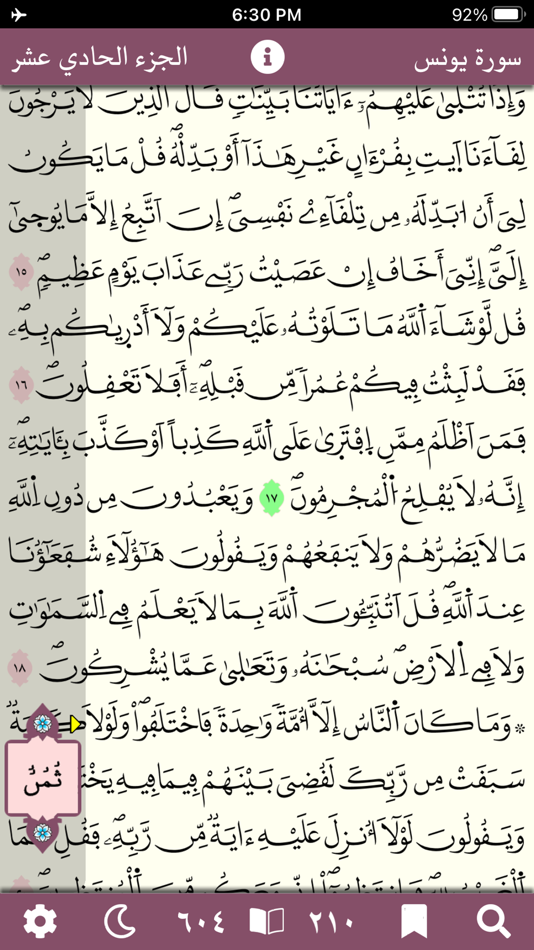 6:30 PM
92%
سورة يونس
الجزء الحادي عشر
وَإِذَا تُتْلَىٰ عَلَيْهِمُۥٓ ءَايَاتُنَا بَيِّنَٰتٖ قَالَ ٱلذِينَ لَا يَرْجُونَ
لِقَآءَنَا ٱيتِ بِقُرْءَانٍ غَيْرِ هَٰذَآ أَوْ بَدِّلْهُۖ قُلْ مَا يَكُونُ
لِيَ أَنُ ابَدِّلَهُۥ مِن تِلْقَآءِےْ نَفْسِيَۖ إِنَ اَتَّبِعُ إِلَّا مَا يُوحَىٰٓ
إِلَيَّۖ إِنِّيَ أَخَافُ إِنْ عَصَيْتُ رَبِّے عَذَابَ يَوْمٍ عَظِيمٖۖ ١٥
قُل لَّوْ شَآءَ اَ۬للَّهُ مَا تَلَوْتُهُۥ عَلَيْكُمْ وَلَآ أَدْر۪ىٰكُم بِهِۦۖ
فَقَدْ لَبِثْتُ فِيكُمْ عُمُراٗ مِّن قَبْلِهِۦٓۖ أَفَلَا تَعْقِلُونَۖ ١٦
فَمَنَ اَظْلَمُ مِمَّنِ اِ۪فْتَر۪ىٰ عَلَى اَ۬للَّهِ كَذِباً اَوْ كَذَّبَ بِـَٔايَٰتِهِۦٓۖ
إِنَّهُۥ لَا يُفْلِحُ اُ۬لْمُجْرِمُونَۖ ١٧ وَيَعْبُدُونَ مِن دُونِ اِ۬للَّهِ
مَا لَا يَضُرُّهُمْ وَلَا يَنفَعُهُمْ وَيَقُولُونَ هَٰٓؤُلَآءِ شُفَعَٰٓؤُنَا
عِندَ اَ۬للَّهِۖ قُلَ اَتُنَبِّـُٔونَ اَ۬للَّهَ بِمَا لَا يَعْلَمُ فِے اِ۬لسَّمَٰوَٰتِ
وَلَا فِے اِ۬لَارْضِۖ سُبْحَٰنَهُۥ وَتَعَٰل۪ىٰ عَمَّا يُشْرِكُونَۖ ١٨
۞ وَمَا كَانَ اَ۬لنَّاسُ إِلَّآ أُمَّةٗ وَٰحِدَةٗ فَاخْتَلَفُواْۖ وَلَوْلَا
سَبَقَتْ مِن رَّبِّكَ لَقُضِيَ بَيْنَهُمْ فِيمَا فِيهِ
ثُمُنٌ
وَيَقُولُونَ لَوْلَآ أُنزِلَ عَلَيْهِ ءَايَةٞ مِّن رَّبِّهِۦۖ فَقُلِ
٦٠٤
٢١٠